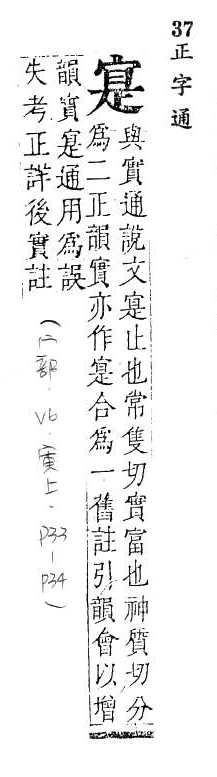 37正字通
寔
與實通說文寔止也常隻切實富也神質切分
為二正韻實亦作寔合為一舊註引韻會以增
韻實寔通用為誤
失考正詳後實註
(宀部.V6.寅上.P33-P34)